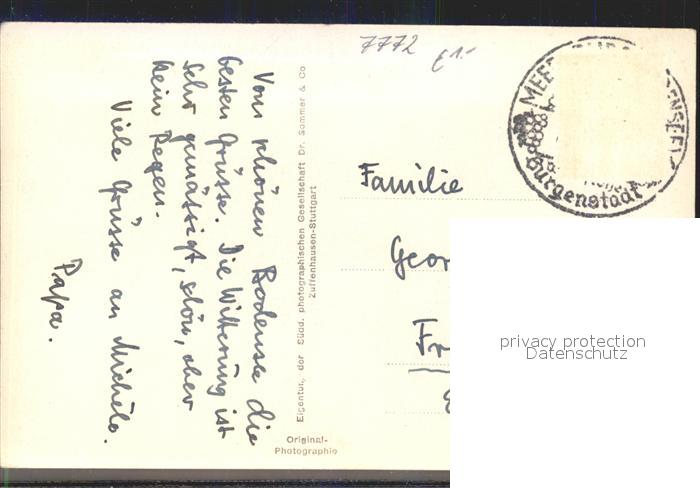 7772
€1.-
MEERSBURG
BODENSEE
Burgenstadt
Vom schönen Bodensee die
besten Grüsse. Die Witterung ist
sehr gemässigt, schön, aber
kein Regen.
Viele Grüsse an Michélo.
Papa.
Eigentum, der Südd. photographischen Gesellschaft Dr. Sommer & Co
Zuffenhausen-Stuttgart
Original-
Photographie
Familie
Geor
Fr
privacy protection
Datenschutz